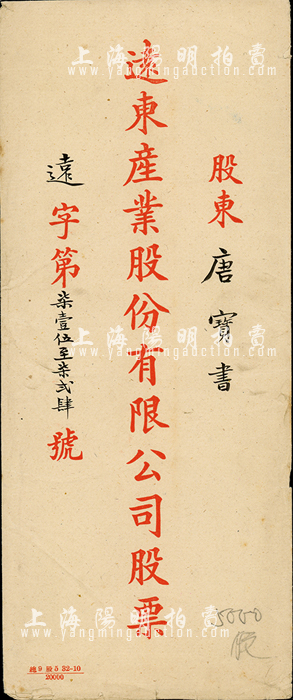 股東 唐寶書
遠東產業股份有限公司股票
遠字第柒壹伍至柒弍肆號
5000
股
總9 股5 32-10
20000
上海陽明拍賣
www.yangmingauction.com
上海陽明拍賣
www.yangmingauction.com
上海陽明拍賣
www.yangmingauction.com